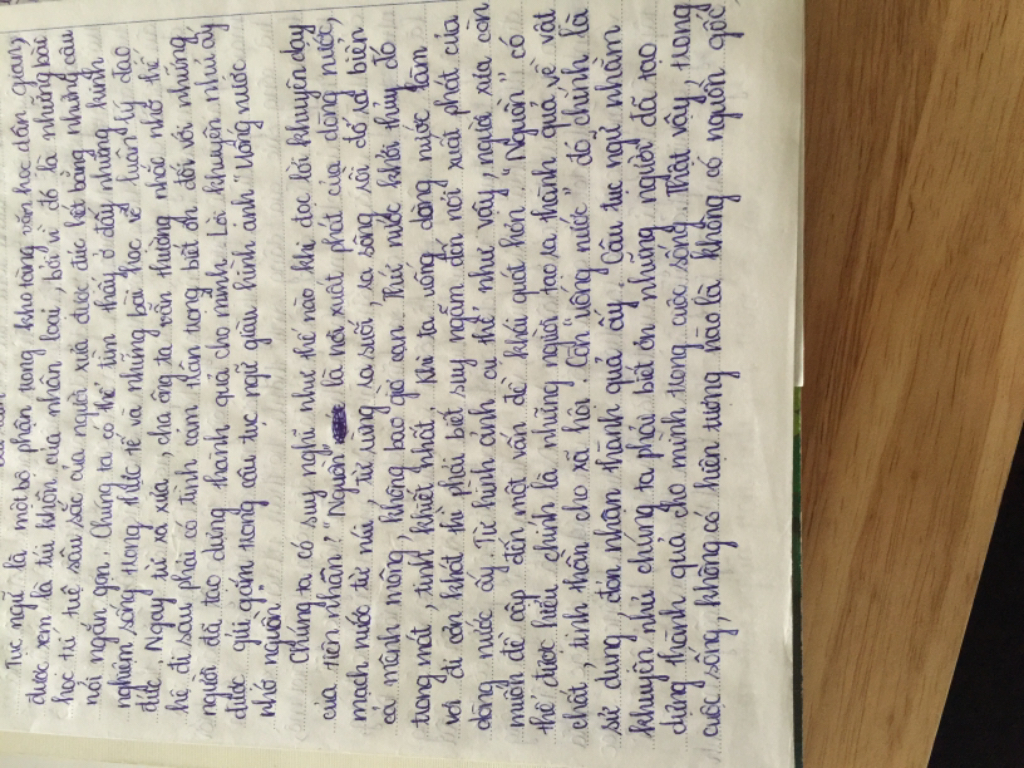 Tục ngữ là một bộ phận trong kho tàng văn học dân gian,
được xem là túi khôn của nhân loại, bởi vì đó là những bài
học trí tuệ sâu sắc của người xưa được đúc kết bằng những câu
nói ngắn gọn. Chúng ta có thể tìm thấy ở đấy những kinh
nghiệm sống trong thực tế và những bài học về luân lý đạo
đức. Ngay từ xa xưa, cha ông ta vẫn thường nhắc nhở thế
hệ đi sau phải có tình cảm trân trọng biết ơn đối với những
người đã tạo dựng thành quả cho mình. Lời khuyên nhủ ấy
được gửi gắm trong câu tục ngữ giàu hình ảnh "Uống nước
nhớ nguồn".
Chúng ta có suy nghĩ như thế nào khi đọc lời khuyên dạy
của tiền nhân? "Nguồn" là nơi xuất phát của dòng nước,
mạch nước từ núi, từ rừng ra suối, ra sông rồi đổ ra biển
cả mênh mông, không bao giờ cạn. Thứ nước khởi thủy đó
trong mát, tinh khiết nhất. Khi ta uống dòng nước làm
vơi đi cơn khát thì phải biết suy ngẫm đến nơi xuất phát của
dòng nước ấy. Từ hình ảnh cụ thể như vậy, người xưa còn
muốn đề cập đến một vấn đề khái quát hơn. "Nguồn" có
thể được hiểu chính là những người tạo ra thành quả về vật
chất, tinh thần cho xã hội. Còn "uống nước" đó chính là
sử dụng, đón nhận thành quả ấy. Câu tục ngữ nhằm
khuyên nhủ chúng ta phải biết ơn những người đã tạo
dựng thành quả cho mình trong cuộc sống. Thật vậy, trong
cuộc sống, không có hiện tượng nào là không có nguồn gốc